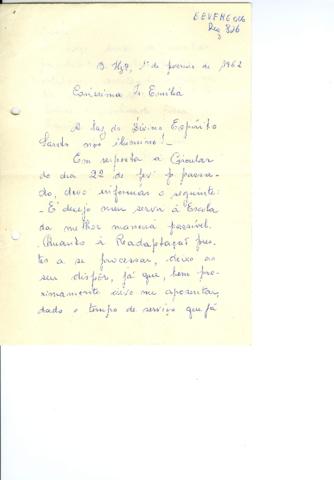 B. Hte, 1º de  de 1962
Caríssima Ir. Emilia
A luz do Divino Espírito
Santo nos ilumine! –
Em resposta a Circular
do dia 22 de p. passa-
do, devo informar o seguinte:
– É desejo meu servir à Escola
da melhor maneira possível.
Quanto à Readaptação pres-
tes a se processar, deixo ao
seu dispôr, já que, bem pro-
ximamente devo me aposentar,
dado o tempo de serviço que já